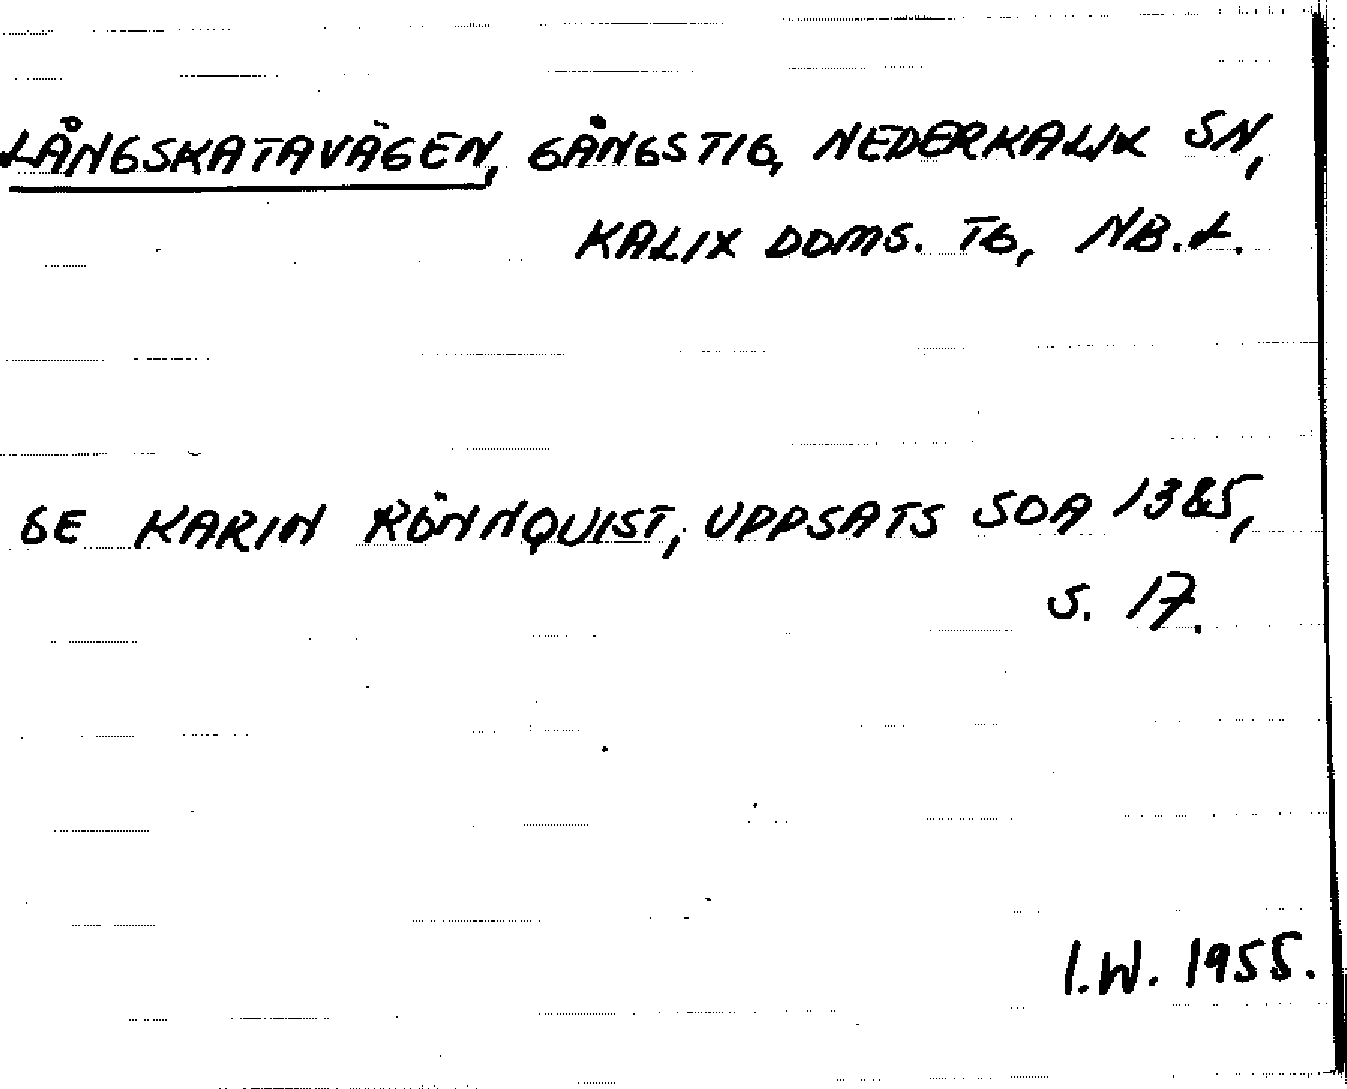 LÅNGSKATAVÄGEN, GÅNGSTIG, NEDERKALIX SN,
KALIX DOMS. TG, NB.L.
SE KARIN RÖNNQUIST, UPPSATS SOA 1385,
S. 17.
I.W. 1955.